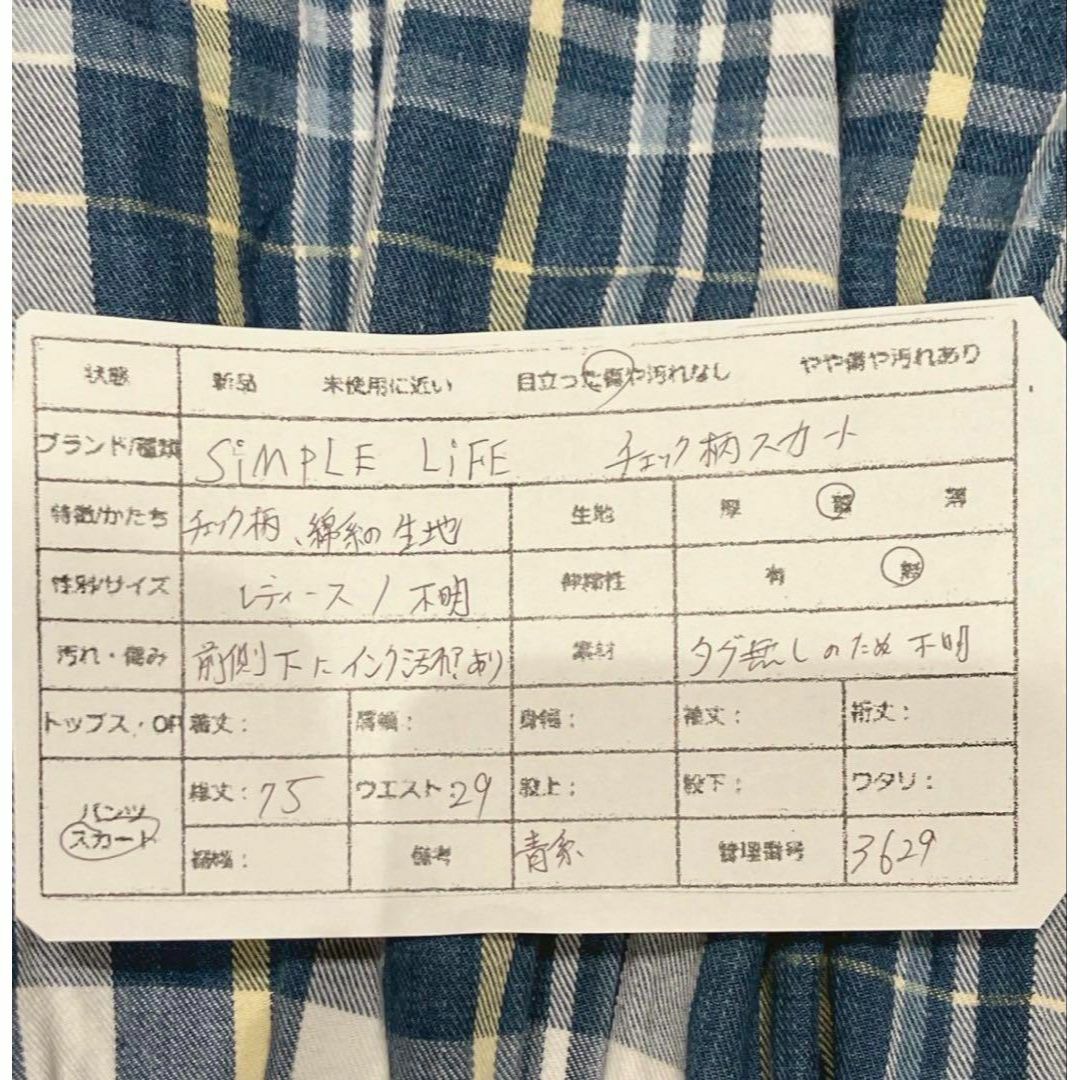 状態 新品 未使用に近い 目立った傷や汚れなし やや傷や汚れあり
ブランド/種類 SiMPLE LiFE チェック柄スカート
特徴/かたち チェック柄、綿系の生地 生地 厚 普 薄
性別/サイズ レディース / 不明 伸縮性 有 無
汚れ・傷み 前側下にインク汚れ?あり 素材 タグ無しのため不明
トップス・OP 着丈: 肩幅: 身幅: 袖丈: 裄丈:
パンツ スカート 総丈:75 ウエスト:29 股上: 股下: ワタリ:
裾幅: 備考 青系 管理番号 3629